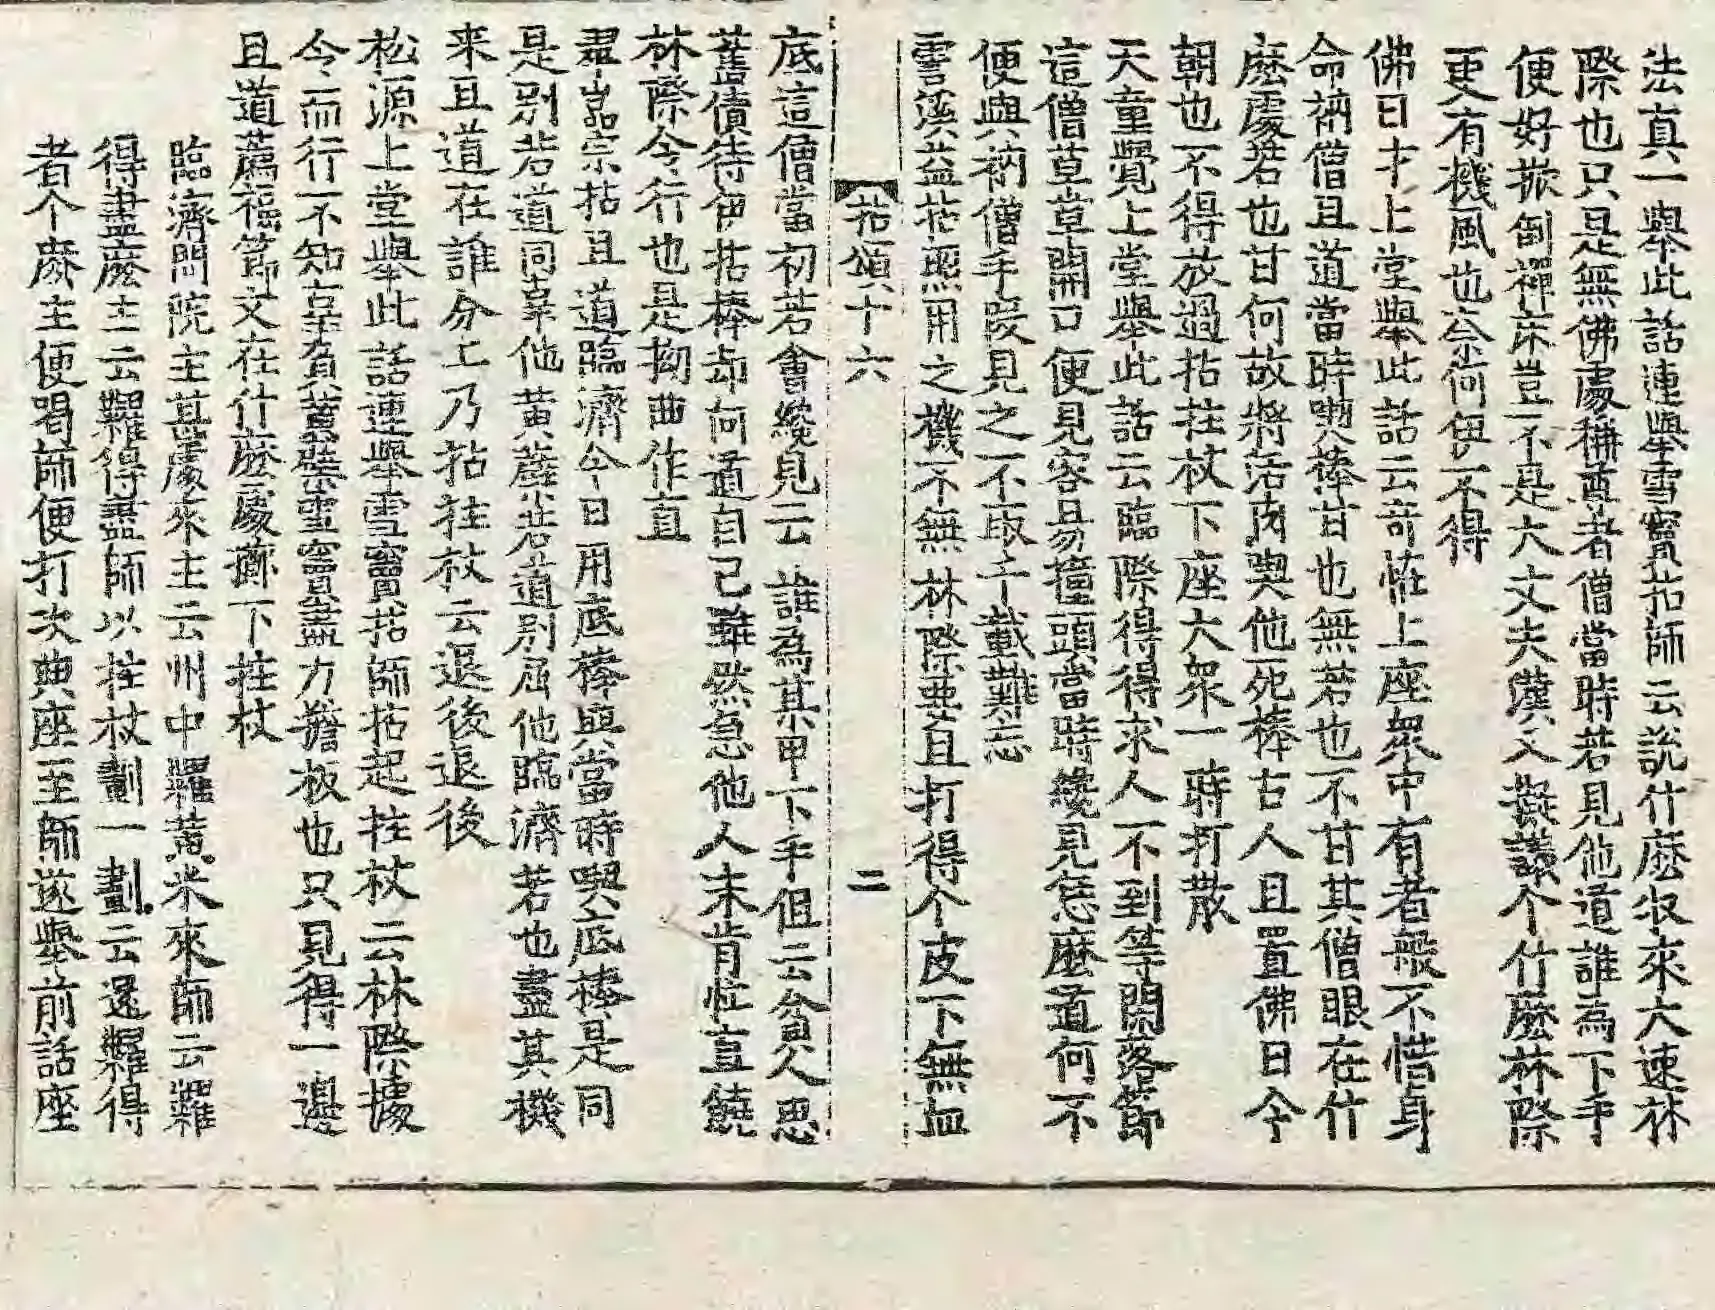 法真一舉此話連舉雪竇拈師云說什麽收來大速林
際也只是無佛處稱尊者僧當時若見他道誰為下手
便好掀倒禪床豈不是大丈夫漢又擬議个什麽林際
更有機風也奈何伊不得
佛日才上堂舉此話云奇怪上座衆中有者般不惜身
命衲僧且道當時喫棒甘也無若也不甘其僧眼在什
麽處若也甘何故將活肉喫他死棒古人且置佛日今
朝也不得放過拈拄杖下座大衆一時打散
天童覺上堂舉此話云臨際得得求人不到等閑落節
這僧草草開口便見容易撞頭當時纔見恁麽道何不
便與衲僧手段見之不取千載難忘
雲溪益拈照用之機不無林際要且打得个皮下無血
拈頌十六 二
底這僧當初若會纔見云誰為某甲下手但云貧人思
舊債待伊拈棒却何道自己雖然急他人未肯忙豈饒
林際令行也是拗曲作直
崇拈且道臨濟今日用底棒與當時喫底棒是同
是別若道同辜他黃蘗若道別屈他臨濟若也盡其機
来且道在誰分上乃拈拄杖云退後退後
松源上堂舉此話連舉雪竇拈師拈起拄杖云林際據
令而行不知辜負黃蘗雪竇盡力擔板也只見得一邊
且道薦福節文在什麽處擲下拄杖
臨濟問院主甚處來主云州中糶黃米來師云糶
得盡麽主云糶得盡師以拄杖劃一劃云還糶得
者个麽主便喝師便打次典座至師遂舉前話座